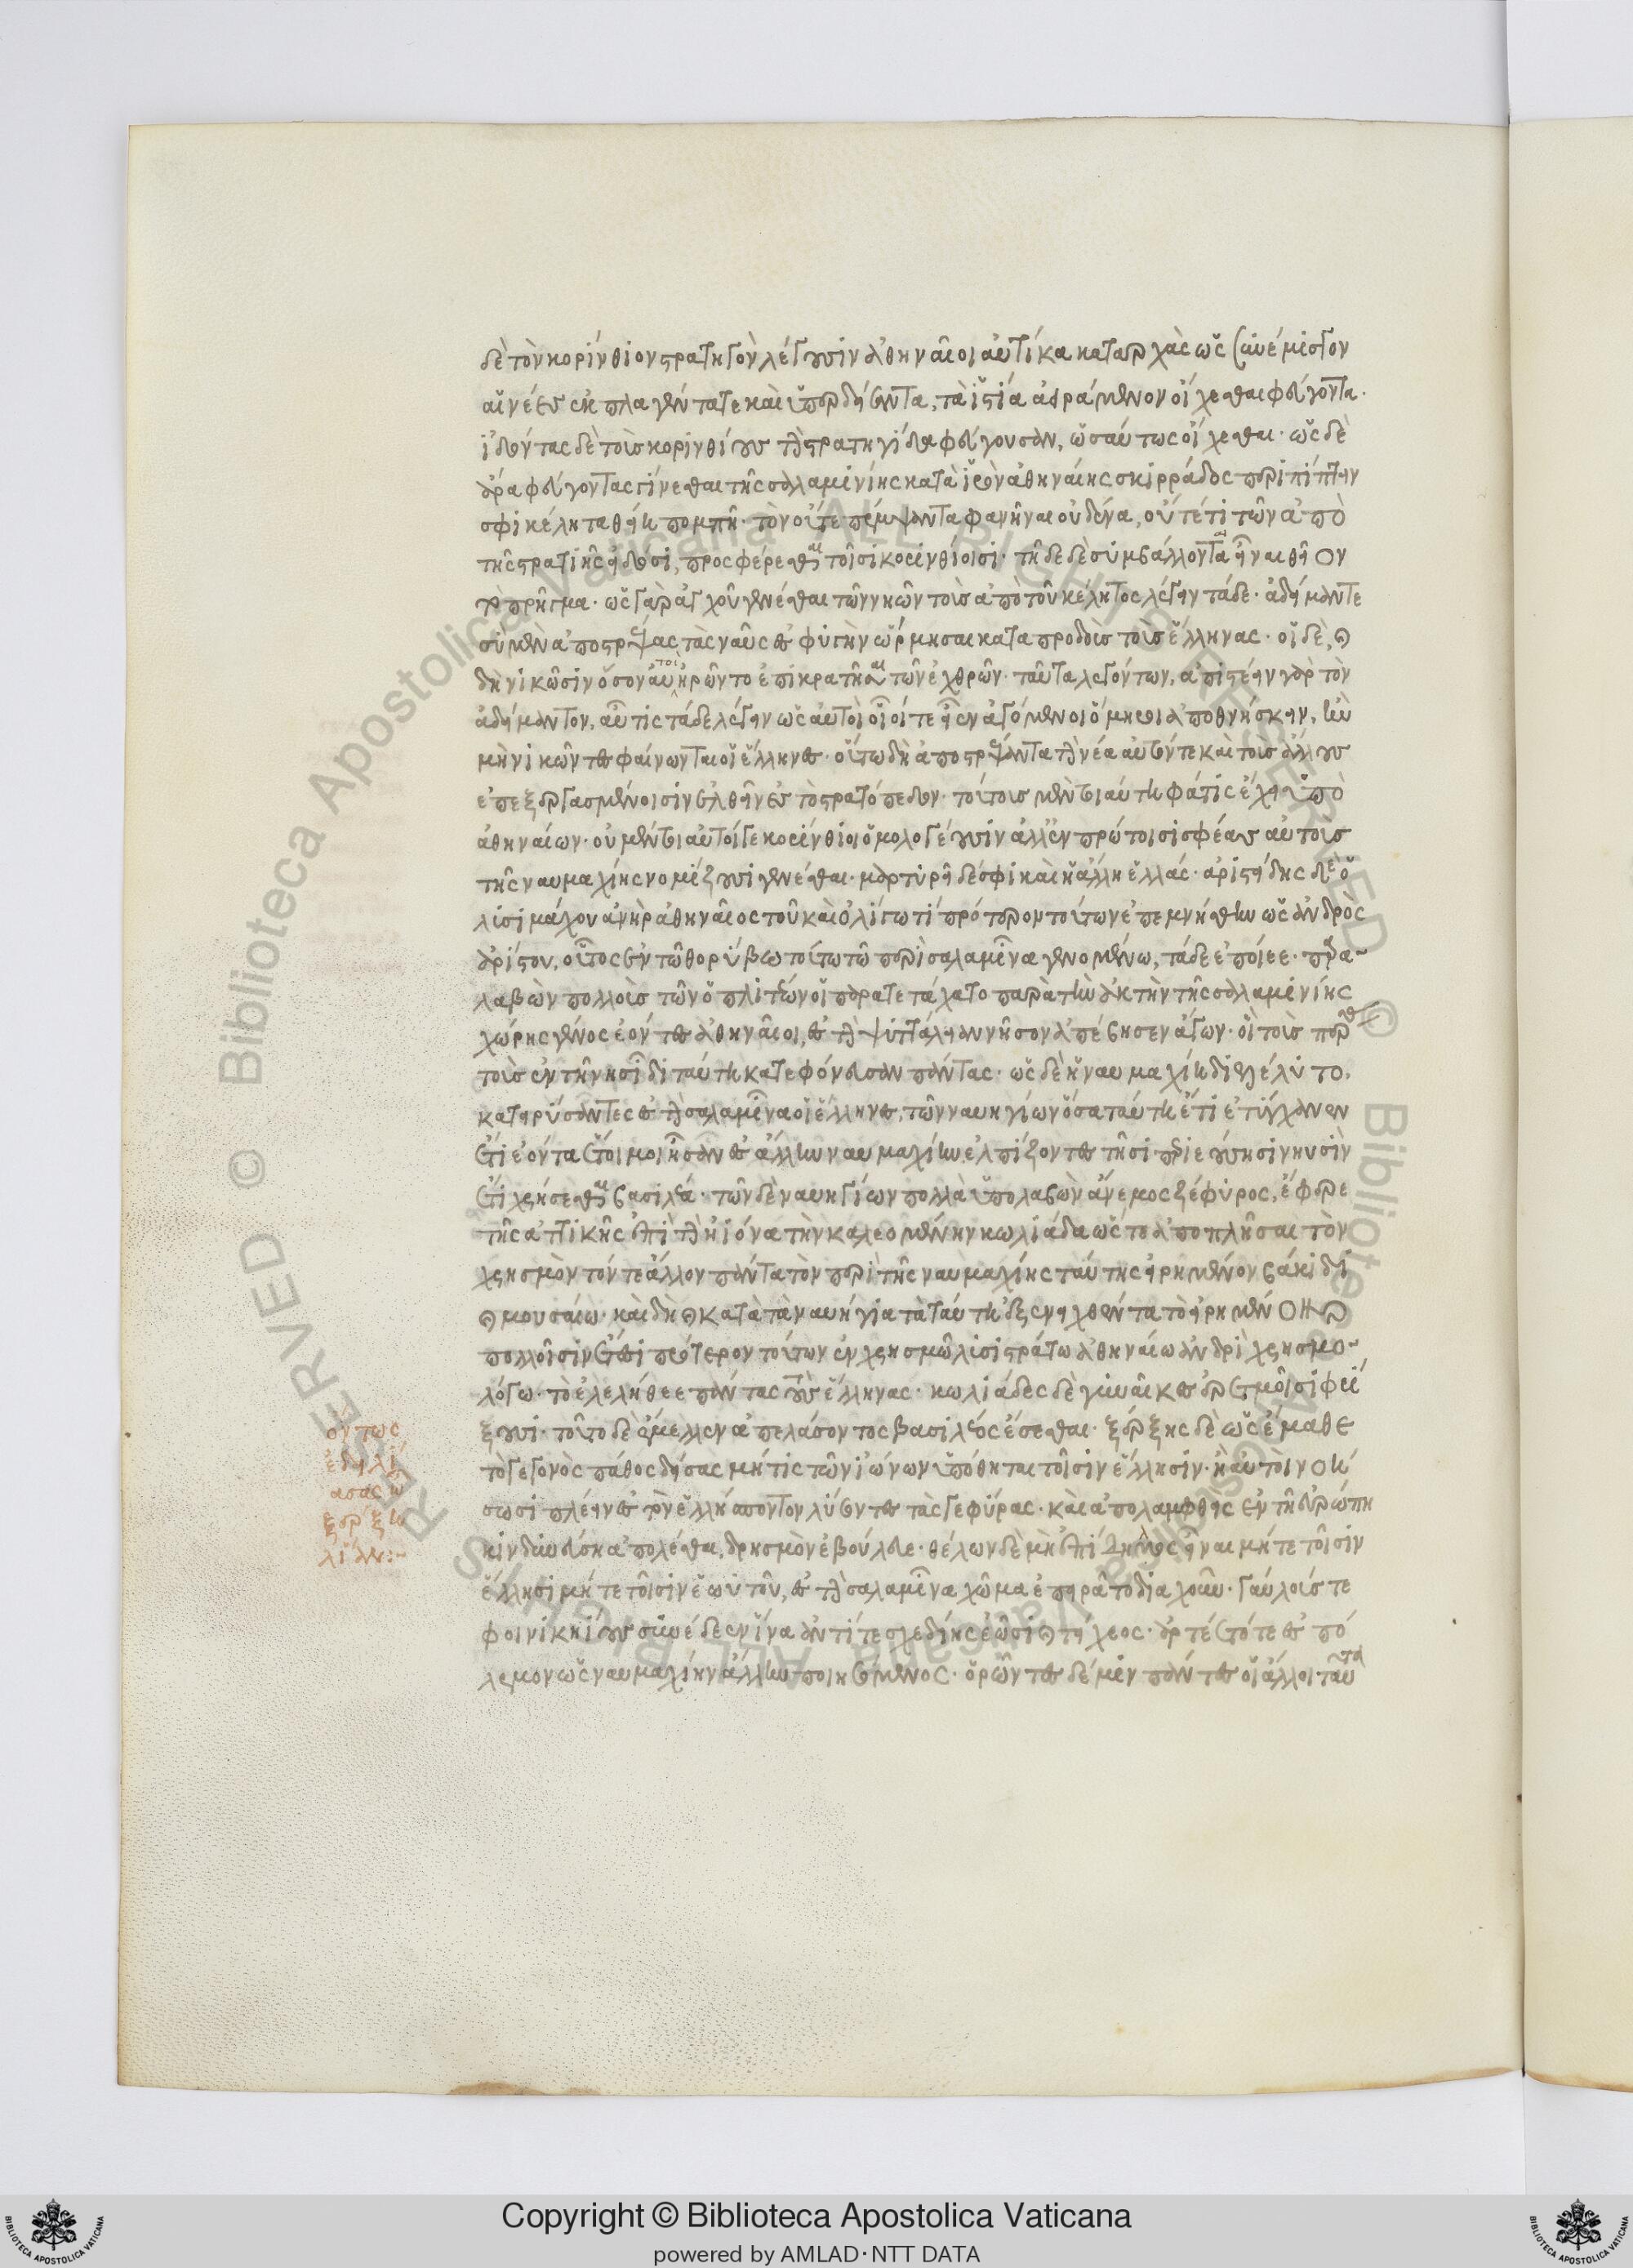 δὲ τὸν κορίνθιον στρατηγὸν λέγουσιν ἀθηναῖοι αὐτίκα καταρχὰς ὡς συνέμισγον
αἱ νέες ἐκπλαγέντα τε καὶ ὑπερδείσαντα, τὰ ἱστία ἀειράμενον οἴχεσθαι φεύγοντα.
ἰδόντας δὲ τοὺς κορινθίους τὴν στρατηγίδα φεύγουσαν, ὡσαύτως οἴχεσθαι. ὡς δὲ
ἄρα φεύγοντας γίνεσθαι τῆς σαλαμινίης κατὰ ἱερὸν ἀθηναίης σκιρράδος περιπίπτειν
σφι κέλητα θείη πομπῆ. τὸν οὔτε πέμψαντα φανῆναι οὐδένα, οὔτέ τι τῶν ἀπὸ
τῆς στρατιῆς εἰδόσι, προσφέρεσθαι τοῖσι κορινθίοισι. τῇδε δὲ συμβάλλονται εἶναι θεῖον
τὸ πρῆγμα. ὡς γὰρ ἀγχοῦ γενέσθαι τῶν νηῶν τοὺς ἀπὸ τοῦ κέλητος λέγειν τάδε. ἀδείμαντε
σὺ μὲν ἀποστρέψας τὰς ναῦς ἐς φυγὴν ὥρμησαι καταπροδοὺς τοὺς ἕλληνας. οἱ δὲ, καὶ
δὴ νικῶσιν ὅσον αὐτοὶ ἠρῶντο ἐπικρατῆσαι τῶν ἐχθρῶν. ταῦτα λεγόντων, ἀπιστέειν γὰρ τὸν
ἀδείμαντον, αὖτις τάδε λέγειν ὡς αὐτοὶ οἷοί τε εἶεν ἀγόμενοι ὅμηροι ἀποθνήσκειν, ἢν
μὴ νικῶντες φαίνωνται οἱ ἕλληνες. οὕτω δὴ ἀποστρέψαντα τὴν νέα αὐτόν τε καὶ τοὺς ἄλλους
ἐπ' ἐξεργασμένοισιν ἐλθεῖν ἐς τὸ στρατόπεδον. τούτους μέντοι αὕτη φάτις ἔχει ὑπὸ
ἀθηναίων. οὐ μέντοι αὐτοί γε κορίνθιοι ὁμολογέουσιν ἀλλ' ἐν πρώτοισι σφέας αὐτοὺς
τῆς ναυμαχίης νομίζουσι γενέσθαι. μαρτυρεῖ δέ σφι καὶ ἡ ἄλλη ἑλλάς. ἀριστείδης δὲ ὁ
λυσιμάχου ἀνὴρ ἀθηναῖος τοῦ καὶ ὀλίγω τι πρότερον τούτων ἐπεμνήσθην ὡς ἀνδρὸς
ἀρίστου, οὗτος ἐν τῶ θορύβω τούτω τῶ περὶ σαλαμῖνα γενομένω, τάδε ἐποίεε. παρα-
λαβὼν πολλοὺς τῶν ὁπλιτέων οἳ παρατετάχατο παρὰ τὴν ἀκτὴν τῆς σαλαμινίης
χώρης γένος ἐόντες ἀθηναῖοι, ἐς τὴν ψυττάλειαν νῆσον ἀπέβησεν ἄγων. οἳ τοὺς πέρσας
τοὺς ἐν τῆ νησῖδι ταύτη κατεφόνευσαν πάντας. ὡς δὲ ἡ ναυμαχίη διελέλυτο,
κατειρύσαντες ἐς τὴν σαλαμῖνα οἱ ἕλληνες, τῶν ναυηγίων ὅσα ταύτη ἔτι ἐτύγχανεν
ἔτι ἐόντα ἕτοιμοι ἦσαν ἐς ἄλλην ναυμαχίην ἐλπίζοντες τῆσι περιεούσησι νηυσὶν
ἔτι χρήσεσθαι βασιλέα. τῶν δὲ ναυηγίων πολλὰ ὑπολαβὼν ἄνεμος ζέφυρος, ἔφερε
τῆς ἀττικῆς ἐπὶ τὴν ἠιόνα τὴν καλεομένην κωλιάδα ὥστε ἀποπλῆσαι τὸν
χρησμὸν τόν τε ἄλλον πάντα τὸν περὶ τῆς ναυμαχίης ταύτης εἰρημένον βάκιδι
καὶ μουσαίω. καὶ δὴ καὶ κατὰ τὰ ναυήγια τὰ ταύτη ἐξενειχθέντα τὸ εἰρημένον
πολλοῖσιν ἔτεσι πρότερον τούτων ἐν χρησμῶ λυσιστράτω ἀθηναίω ἀνδρὶ χρησμο-
λόγω. τὸ ἐλελήθεε πάντας τοὺς ἕλληνας. κωλιάδες δὲ γυναῖκες ἐρετμοῖσι φρί
ξουσι. τοῦτο δὲ ἔμελλεν ἀπελάσαντος βασιλέος ἔσεσθαι. ξέρξης δὲ ὡς ἔμαθε
τὸ γεγονὸς πάθος δείσας μή τις τῶν ἰώνων ὑπόθηται τοῖσιν ἕλλησιν. ἢ αὐτοὶ νοή
σωσι πλέειν ἐς τὸν ἑλλήσποντον λύσοντες τὰς γεφύρας. καὶ ἀπολαμφθεὶς ἐν τῆ εὐρώπη
κινδυνεύση ἀπολέσθαι, δρησμὸν ἐβούλευε. θέλων δὲ μὴ ἐπίδηλος εἶναι μήτε τοῖσιν
ἕλλησι μήτε τοῖσιν ἑωυτοῦ, ἐς τὴν σαλαμῖνα χῶμα ἐπειρᾶτο διαχοῦν. γαύλους τε
φοινικηίους συνέδεεν ἵνα ἀντί τε σχεδίης ἔωσι καὶ τείχεος. ἀρτέετό τε ἐς πό
λεμον ὡς ναυμαχίην ἄλλην ποιησόμενος. ὁρῶντες δέ μιν πάντες οἱ ἄλλοι ταῦτα